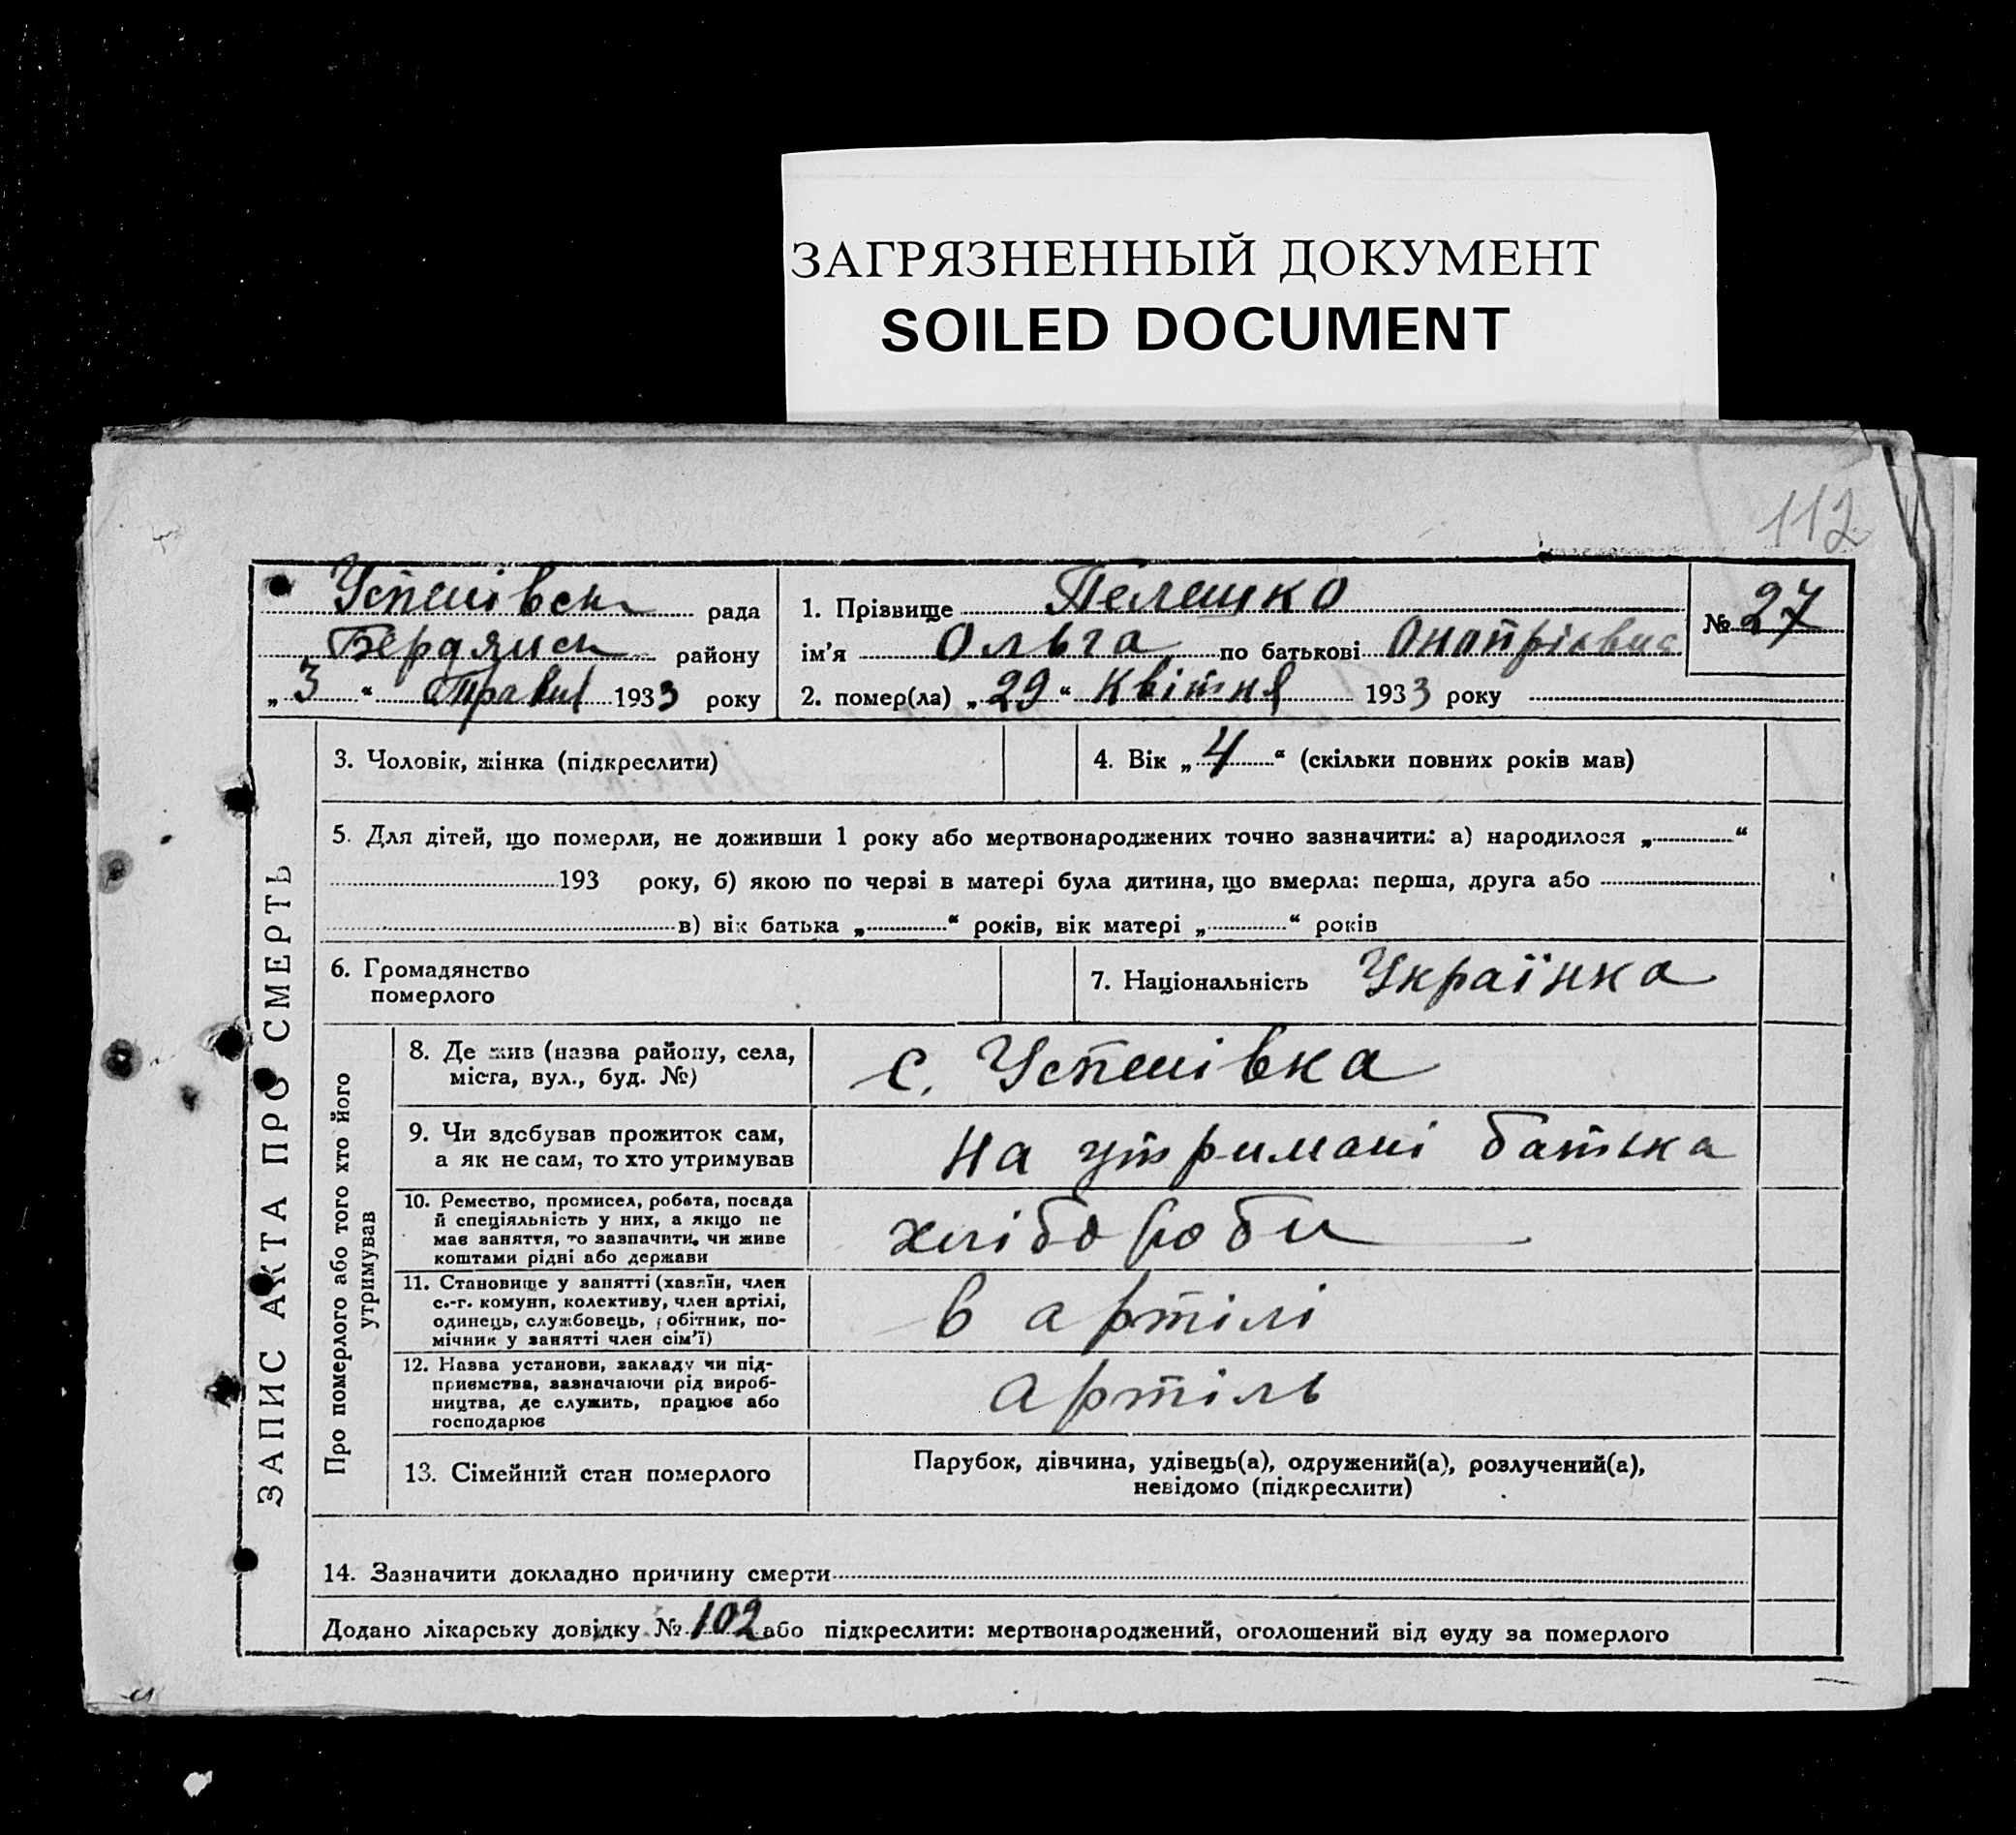 ЗАГРЯЗНЕННЫЙ ДОКУМЕНТ
SOILED DOCUMENT
112
Успенівськ рада
Бердянськ району
„ 3 “ Травня 1933 року
1. Прізвище Пелешко
ім’я Ольга по батькові
2. помер(ла) „ 29 “ Квітня 1933 року
№ 27
ЗАПИС АКТА ПРО СМЕРТЬ
3. Чоловік, жінка (підкреслити)
4. Вік „ 4 “ (скільки повних років мав)
5. Для дітей, що померли, не доживши 1 року або мертвонароджених точно зазначити: а) народилося „ “
193 року, б) якою по черзі в матері була дитина, що вмерла: перша, друга або
в) вік батька „ “ років, вік матері „ “ років
6. Громадянство
померлого
7. Національність Українка
Про померлого або того хто його
утримував
8. Де жив (назва району, села,
міста, вул., буд. №)
с. Успенівка
9. Чи здобував прожиток сам,
а як не сам, то хто утримував
на утримані батька
10. Ремество, промисел, робота, посада
й спеціяльність у них, а якщо не
має заняття, то зазначити, чи живе
коштами рідні або держави
хлібороби
11. Становище у занятті (хазяїн, член
с.-г. комуни, колективу, член артілі,
одинець, службовець, робітник, по-
мічник у занятті член сім’ї)
в артілі
12. Назва установи, закладу чи під-
приємства, зазначаючи рід вироб-
ництва, де служить, працює або
господарює
артіль
13. Сімейний стан померлого
Парубок, дівчина, удівець(а), одружений(а), розлучений(а),
невідомо (підкреслити)
14. Зазначити докладно причину смерти
Додано лікарську довідку № 102 або підкреслити: мертвонароджений, оголошений від суду за померлого